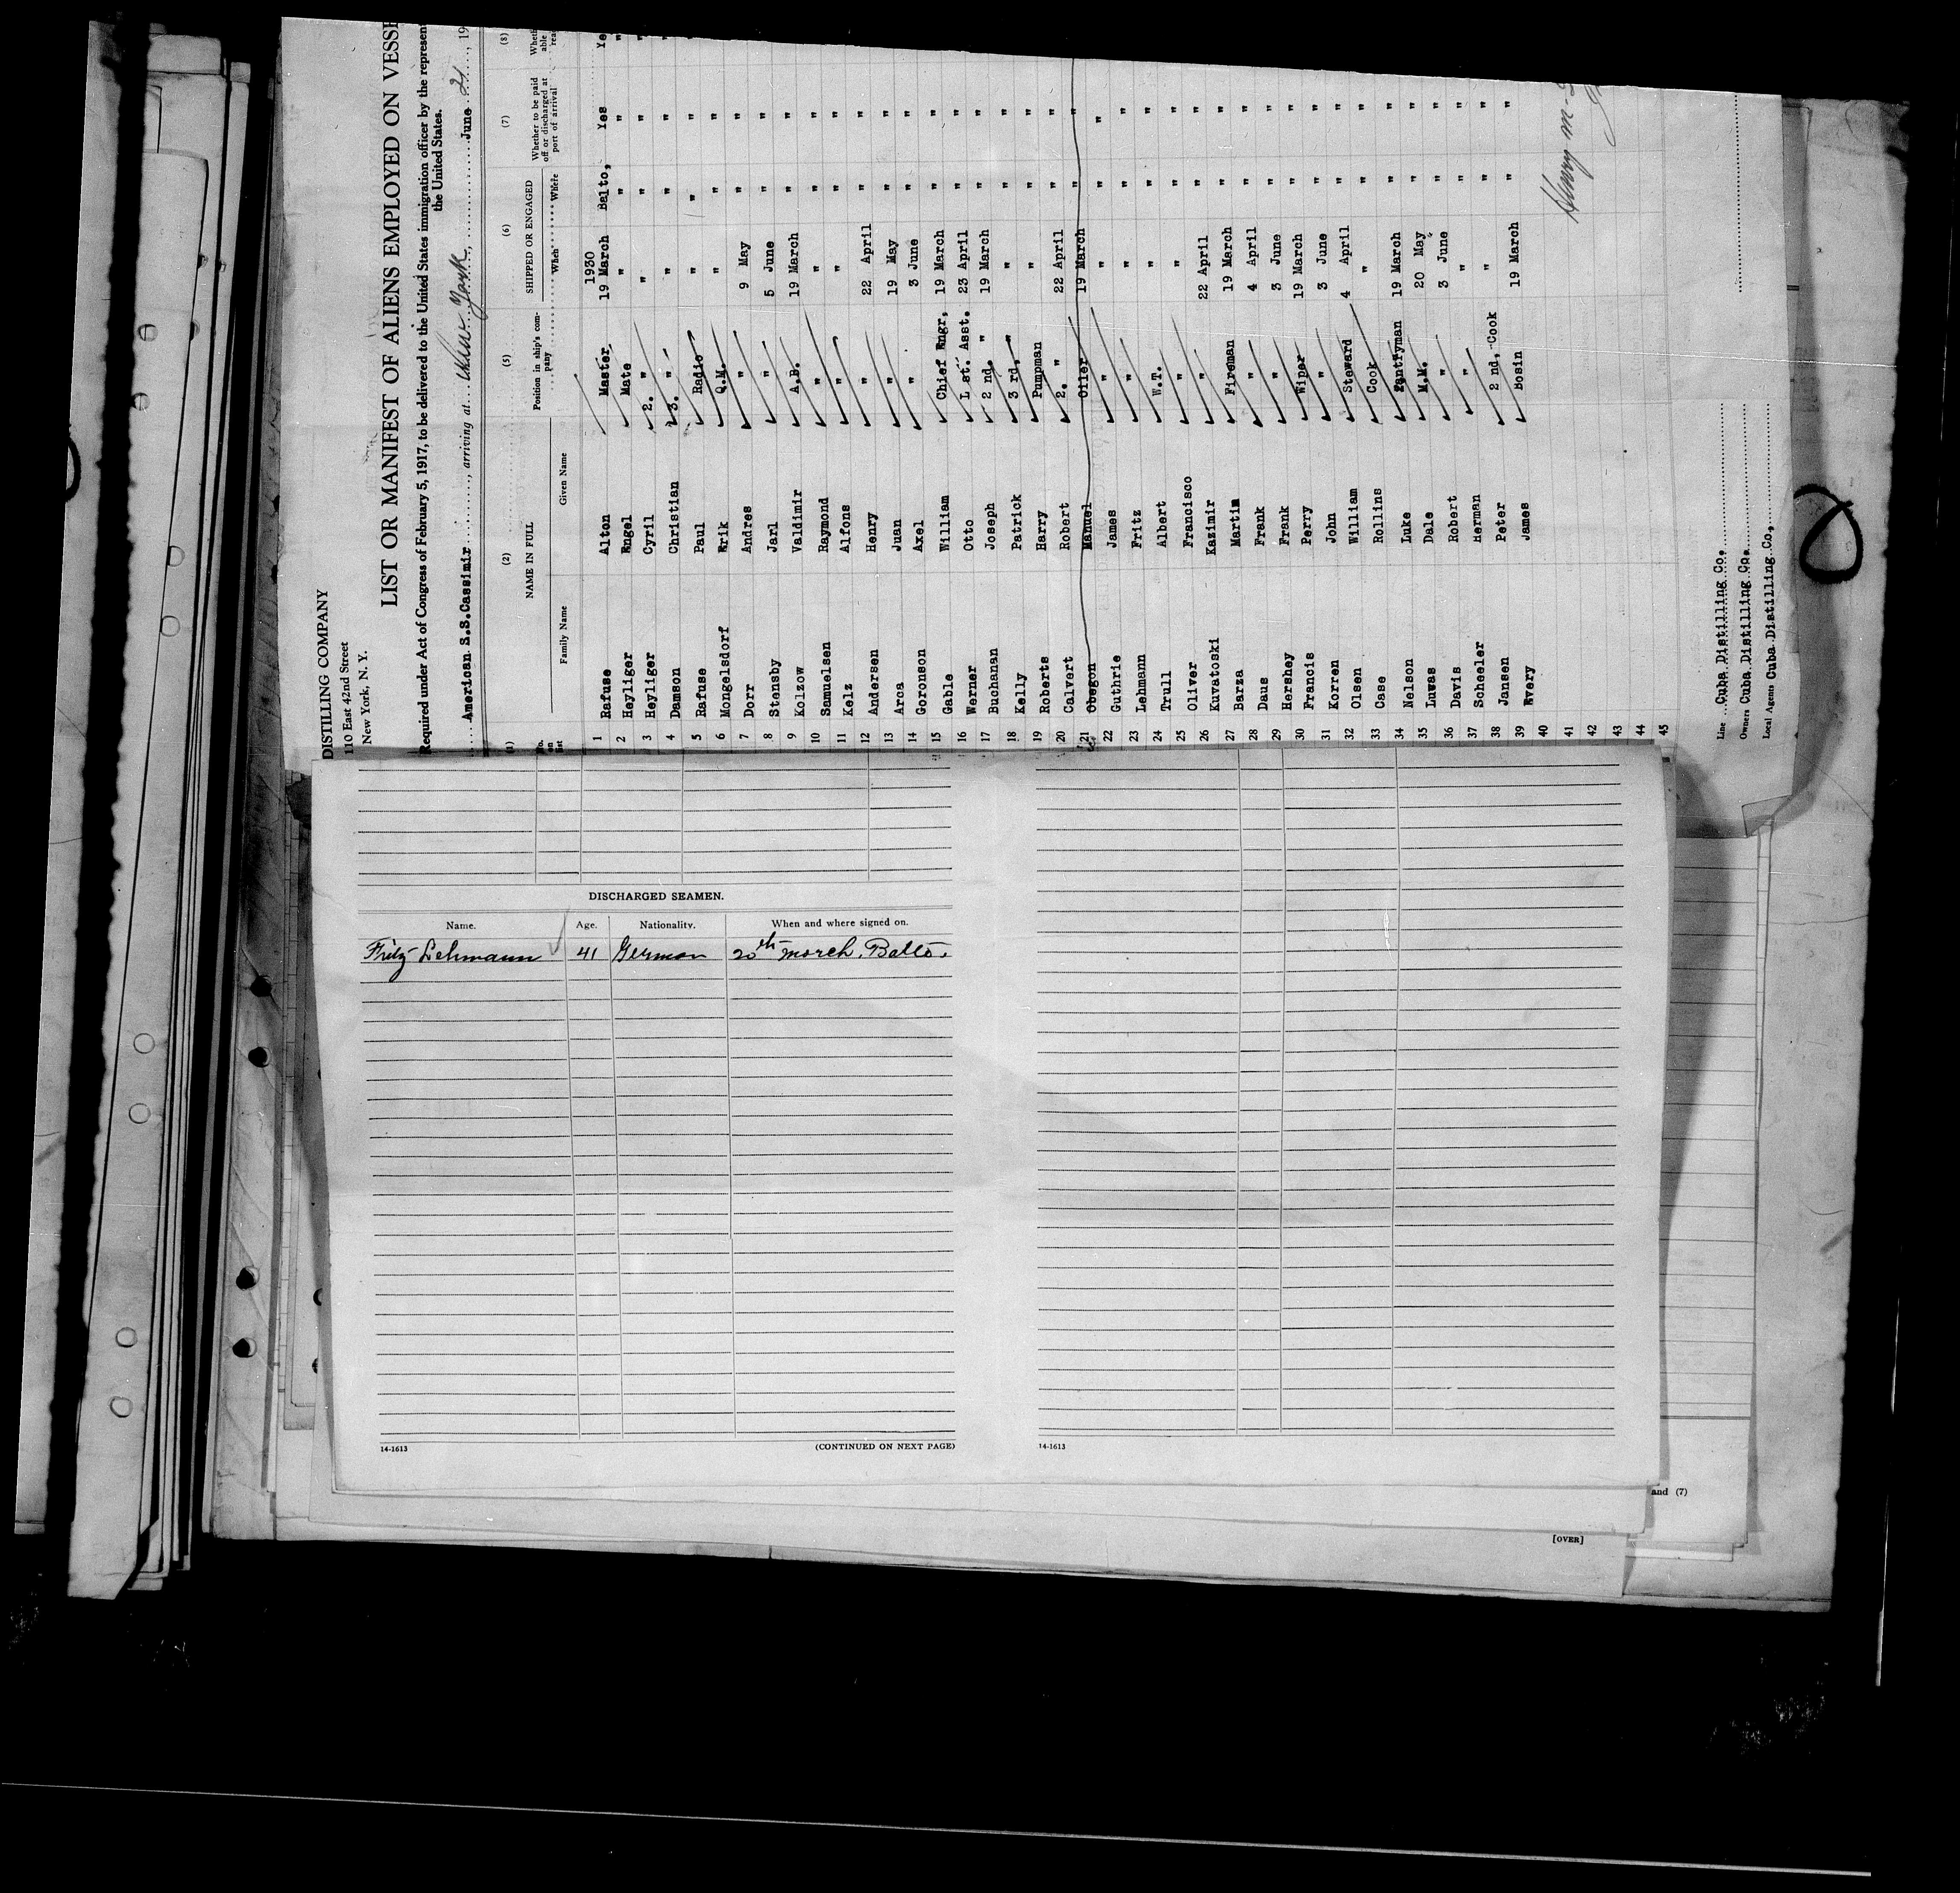 DISTILLING COMPANY
110 East 42nd Street
New York, N. Y.
LIST OR MANIFEST OF ALIENS EMPLOYED ON VESSE
Required under Act of Congress of February 5, 1917, to be delivered to the United States immigration officer by the represent
the United States.
American S.S. Cassimir, arriving at New York, June 21, 19
(1) (2) (5) (6) (7) (8)
No. on list NAME IN FULL Position in ship's company SHIPPED OR ENGAGED Whether to be paid off or discharged at port of arrival
Family Name Given Name When Where
1930
1 Rafuse Alton Master 19 March Balto, Yes Ye
2 Heyliger Engel Mate " " " "
3 Heyliger Cyril 2. " " " " "
4 Damson Christian 3. " " " " "
5 Rafuse Paul Radio " " "
6 Mongelsdorf Erik Q.M. " " "
7 Dorr Andres " 9 May " "
8 Stensby Jarl " 5 June " "
9 Kolzow Valdimir A.B. 19 March " "
10 Samuelsen Raymond " " " "
11 Kelz Alfons " " " "
12 Andersen Henry " 22 April " "
13 Arca Juan " 19 May " "
14 Goronson Axel " 3 June " "
15 Gable William Chief Engr, 19 March " "
16 Werner Otto L st. Asst. 23 April " "
17 Buchanan Joseph 2 nd. " 19 March " "
18 Kelly Patrick 3 rd, " " " "
19 Roberts Harry Pumpman " " "
20 Calvert Robert 2. " 22 April " "
21 Obegon Manuel Oiler 19 March " "
22 Guthrie James " " " "
23 Lehmann Fritz " " " "
24 Trull Albert W.T. " " "
25 Oliver Francisco " " " "
26 Kuvatoski Kazimir " 22 April " "
27 Barza Martin Fireman 19 March " "
28 Daus Frank " 4 April " "
29 Hershey Frank " 3 June " "
30 Francis Perry Wiper 19 March " "
31 Korren John " 3 June " "
32 Olsen William Steward 4 April " "
33 Case Rollins Cook " " "
34 Nelson Luke Pantryman 19 March " "
35 Luwas Dale M.M. 20 May " "
36 Davis Robert " 3 June " "
37 Scheeler Herman " " " "
38 Jansen Peter 2 nd, Cook " " "
39 Every James Bosin 19 March " "
40
41
42
43
44
45
Henry M
Line Cuba Distilling Co,
Owners Cuba Distilling Co.
Local Agents Cuba Distilling Co,
DISCHARGED SEAMEN.
Name. Age. Nationality. When and where signed on.
Fritz Lehmann 41 German 20th March, Balto.
14-1613 (CONTINUED ON NEXT PAGE) 14-1613
and (7)
[OVER]